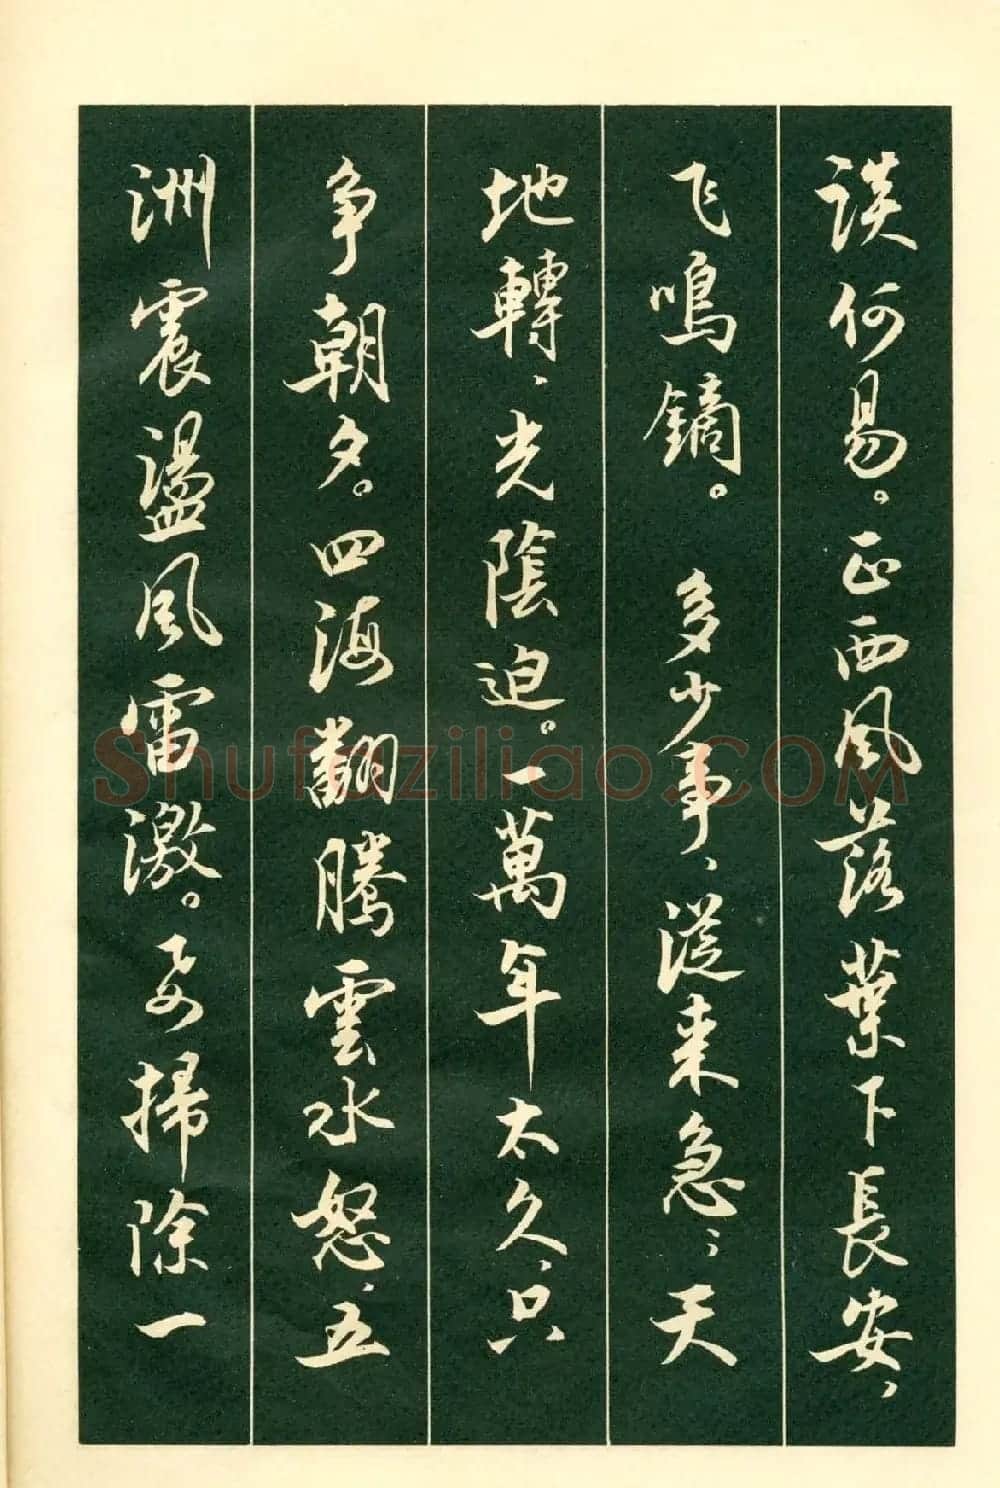 谈何易。正西風落葉下長安，
飞鳴鏑。多少事、從来急；天
地轉、光陰迫。一萬年太久、只
争朝夕。四海翻騰雲水怒、五
洲震盪風雷激。要掃除一
Shufaziliao.COM